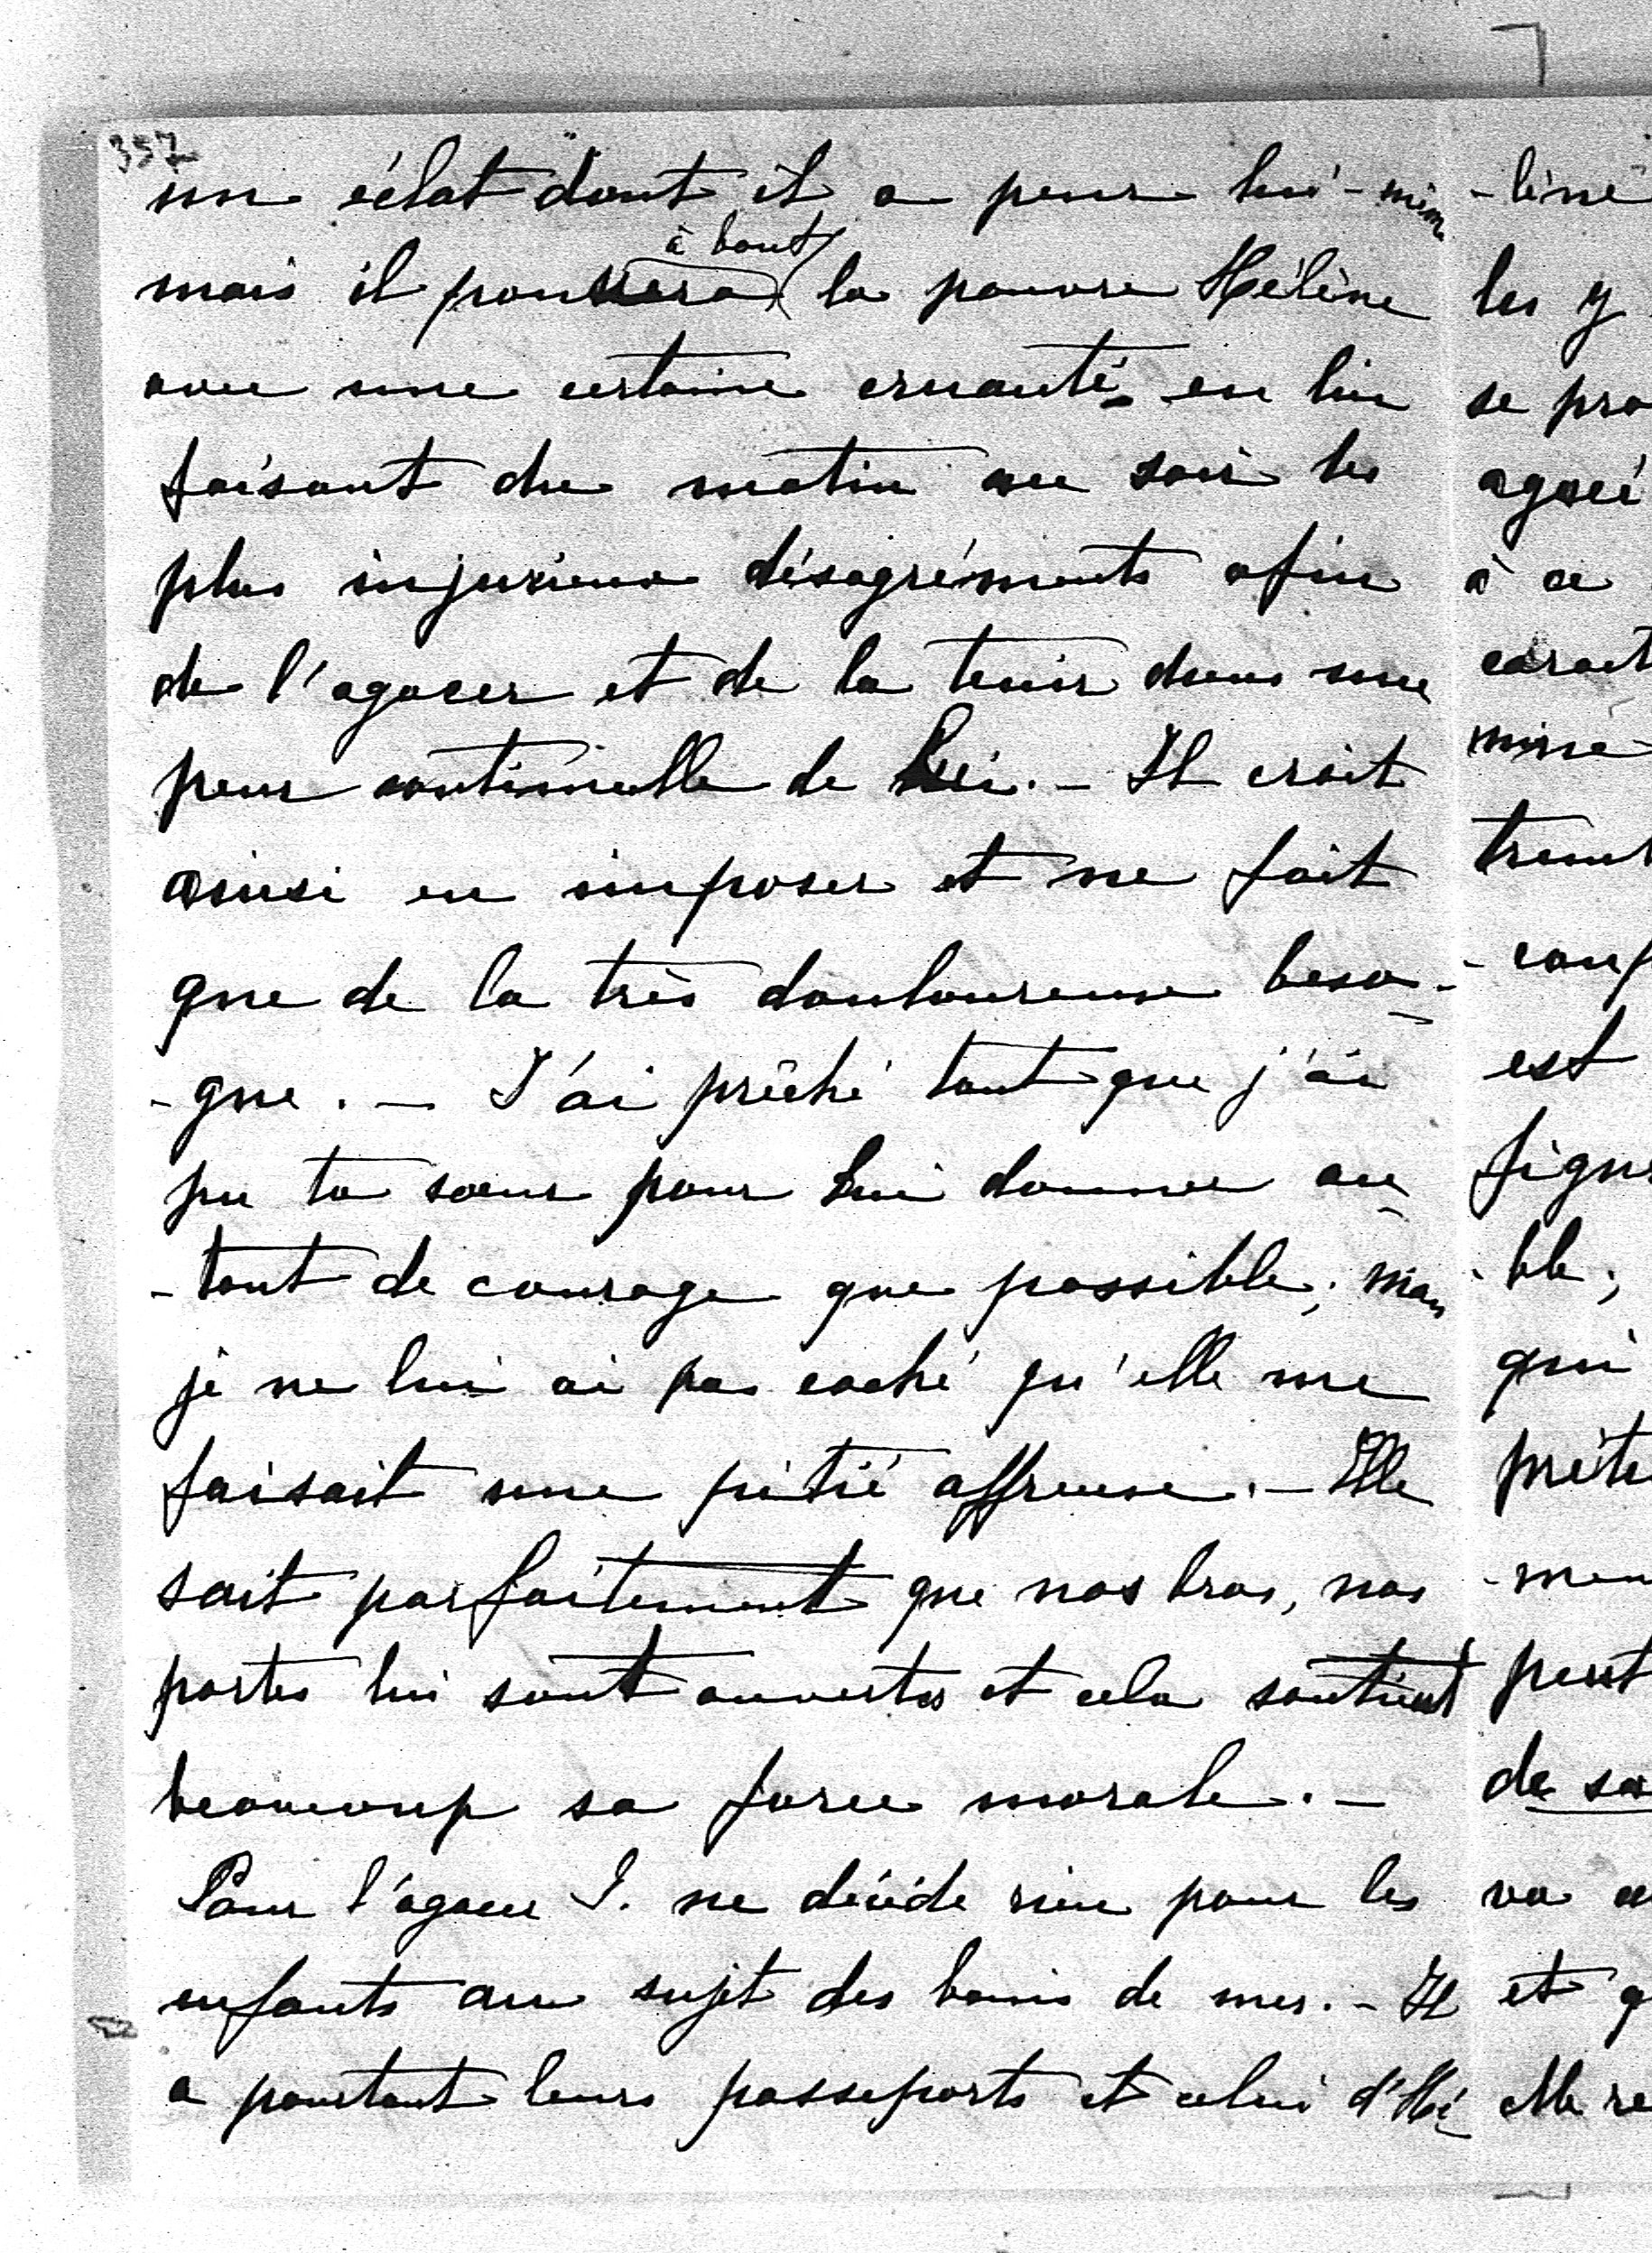 357
un éclat dont il a peur lui-même
à bout
mais il poussera la pauvre Hélène
avec une certaine cruauté en lui
faisant du matin au soir les
plus injurieux désagréments afin
de l'agacer et de la tenir dans une
peur continuelle de lui. – Il croit
ainsi en imposer et ne fait
que de la très douloureuse beso-
-gne. – J'ai prêché tant que j'ai
pu ta sœur pour lui donner au-
-tant de courage que possible; mais
je ne lui ai pas caché qu'elle me
faisait une pitié affreuse. – Elle
sait parfaitement que nos bras, nos
portes lui sont ouvertes et cela soutient
beaucoup sa force morale. –
Pour l'agacer J. ne décide rien pour les
enfants au sujet des bains de mer. – Il
a pourtant leurs passeports et celui d'Hé-
-lène
les y
se pro
agaci
à ce
caract
miné
trem
-
est
figu
-ble;
qui
prête
-men
peut
de sa
va
et q
elle re